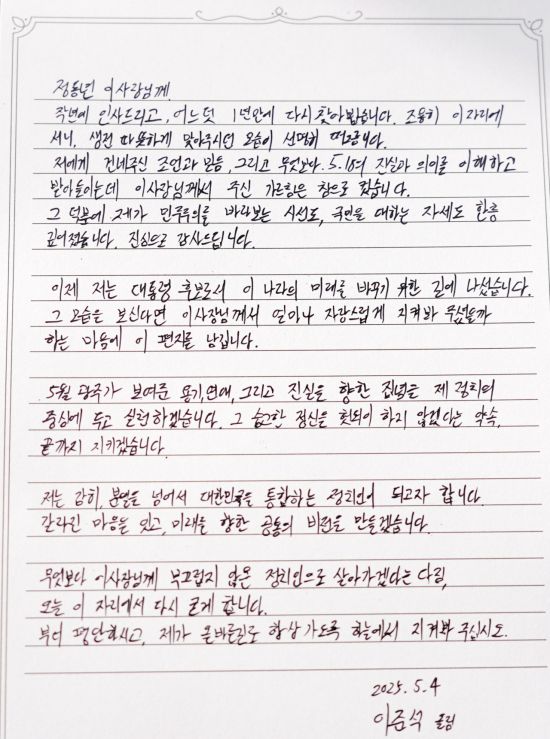 정동년 이사장님께.
작년에 인사드리고, 어느덧 1년만에 다시 찾아뵙습니다. 조용히 이 자리에
서니, 생전 따뜻하게 맞아주시던 모습이 선명히 떠오릅니다.
저에게 건네주신 조언과 믿음, 그리고 무엇보다 5.18의 진실과 의미를 이해하고
받아들이는데 이사장님께서 주신 가르침은 참으로 컸습니다.
그 덕분에 제가 민주주의를 바라보는 시선도, 국민을 대하는 자세도 한층
깊어졌습니다. 진심으로 감사드립니다.
이제 저는 대통령 후보로서 이 나라의 미래를 바꾸기 위한 길에 나섰습니다.
그 모습을 보신다면 이사장님께서 얼마나 자랑스럽게 지켜봐 주셨을까
하는 마음에 이 편지를 남깁니다.
5월 광주가 보여준 용기, 연대, 그리고 진실을 향한 집념을 제 정치의
중심에 두고 실천하겠습니다. 그 숭고한 정신을 헛되이 하지 않겠다는 약속,
끝까지 지키겠습니다.
저는 감히, 분열을 넘어서 대한민국을 통합하는 정치인이 되고자 합니다.
갈라진 마음을 잇고, 미래를 향한 공통의 비전을 만들겠습니다.
무엇보다 이사장님께 부끄럽지 않은 정치인으로 살아가겠다는 다짐,
오늘 이 자리에서 다시 굳게 합니다.
부디 평안하시고, 제가 올바른 길로 항상 가도록 하늘에서 지켜봐 주십시오.
2025. 5. 4
이준석 올림